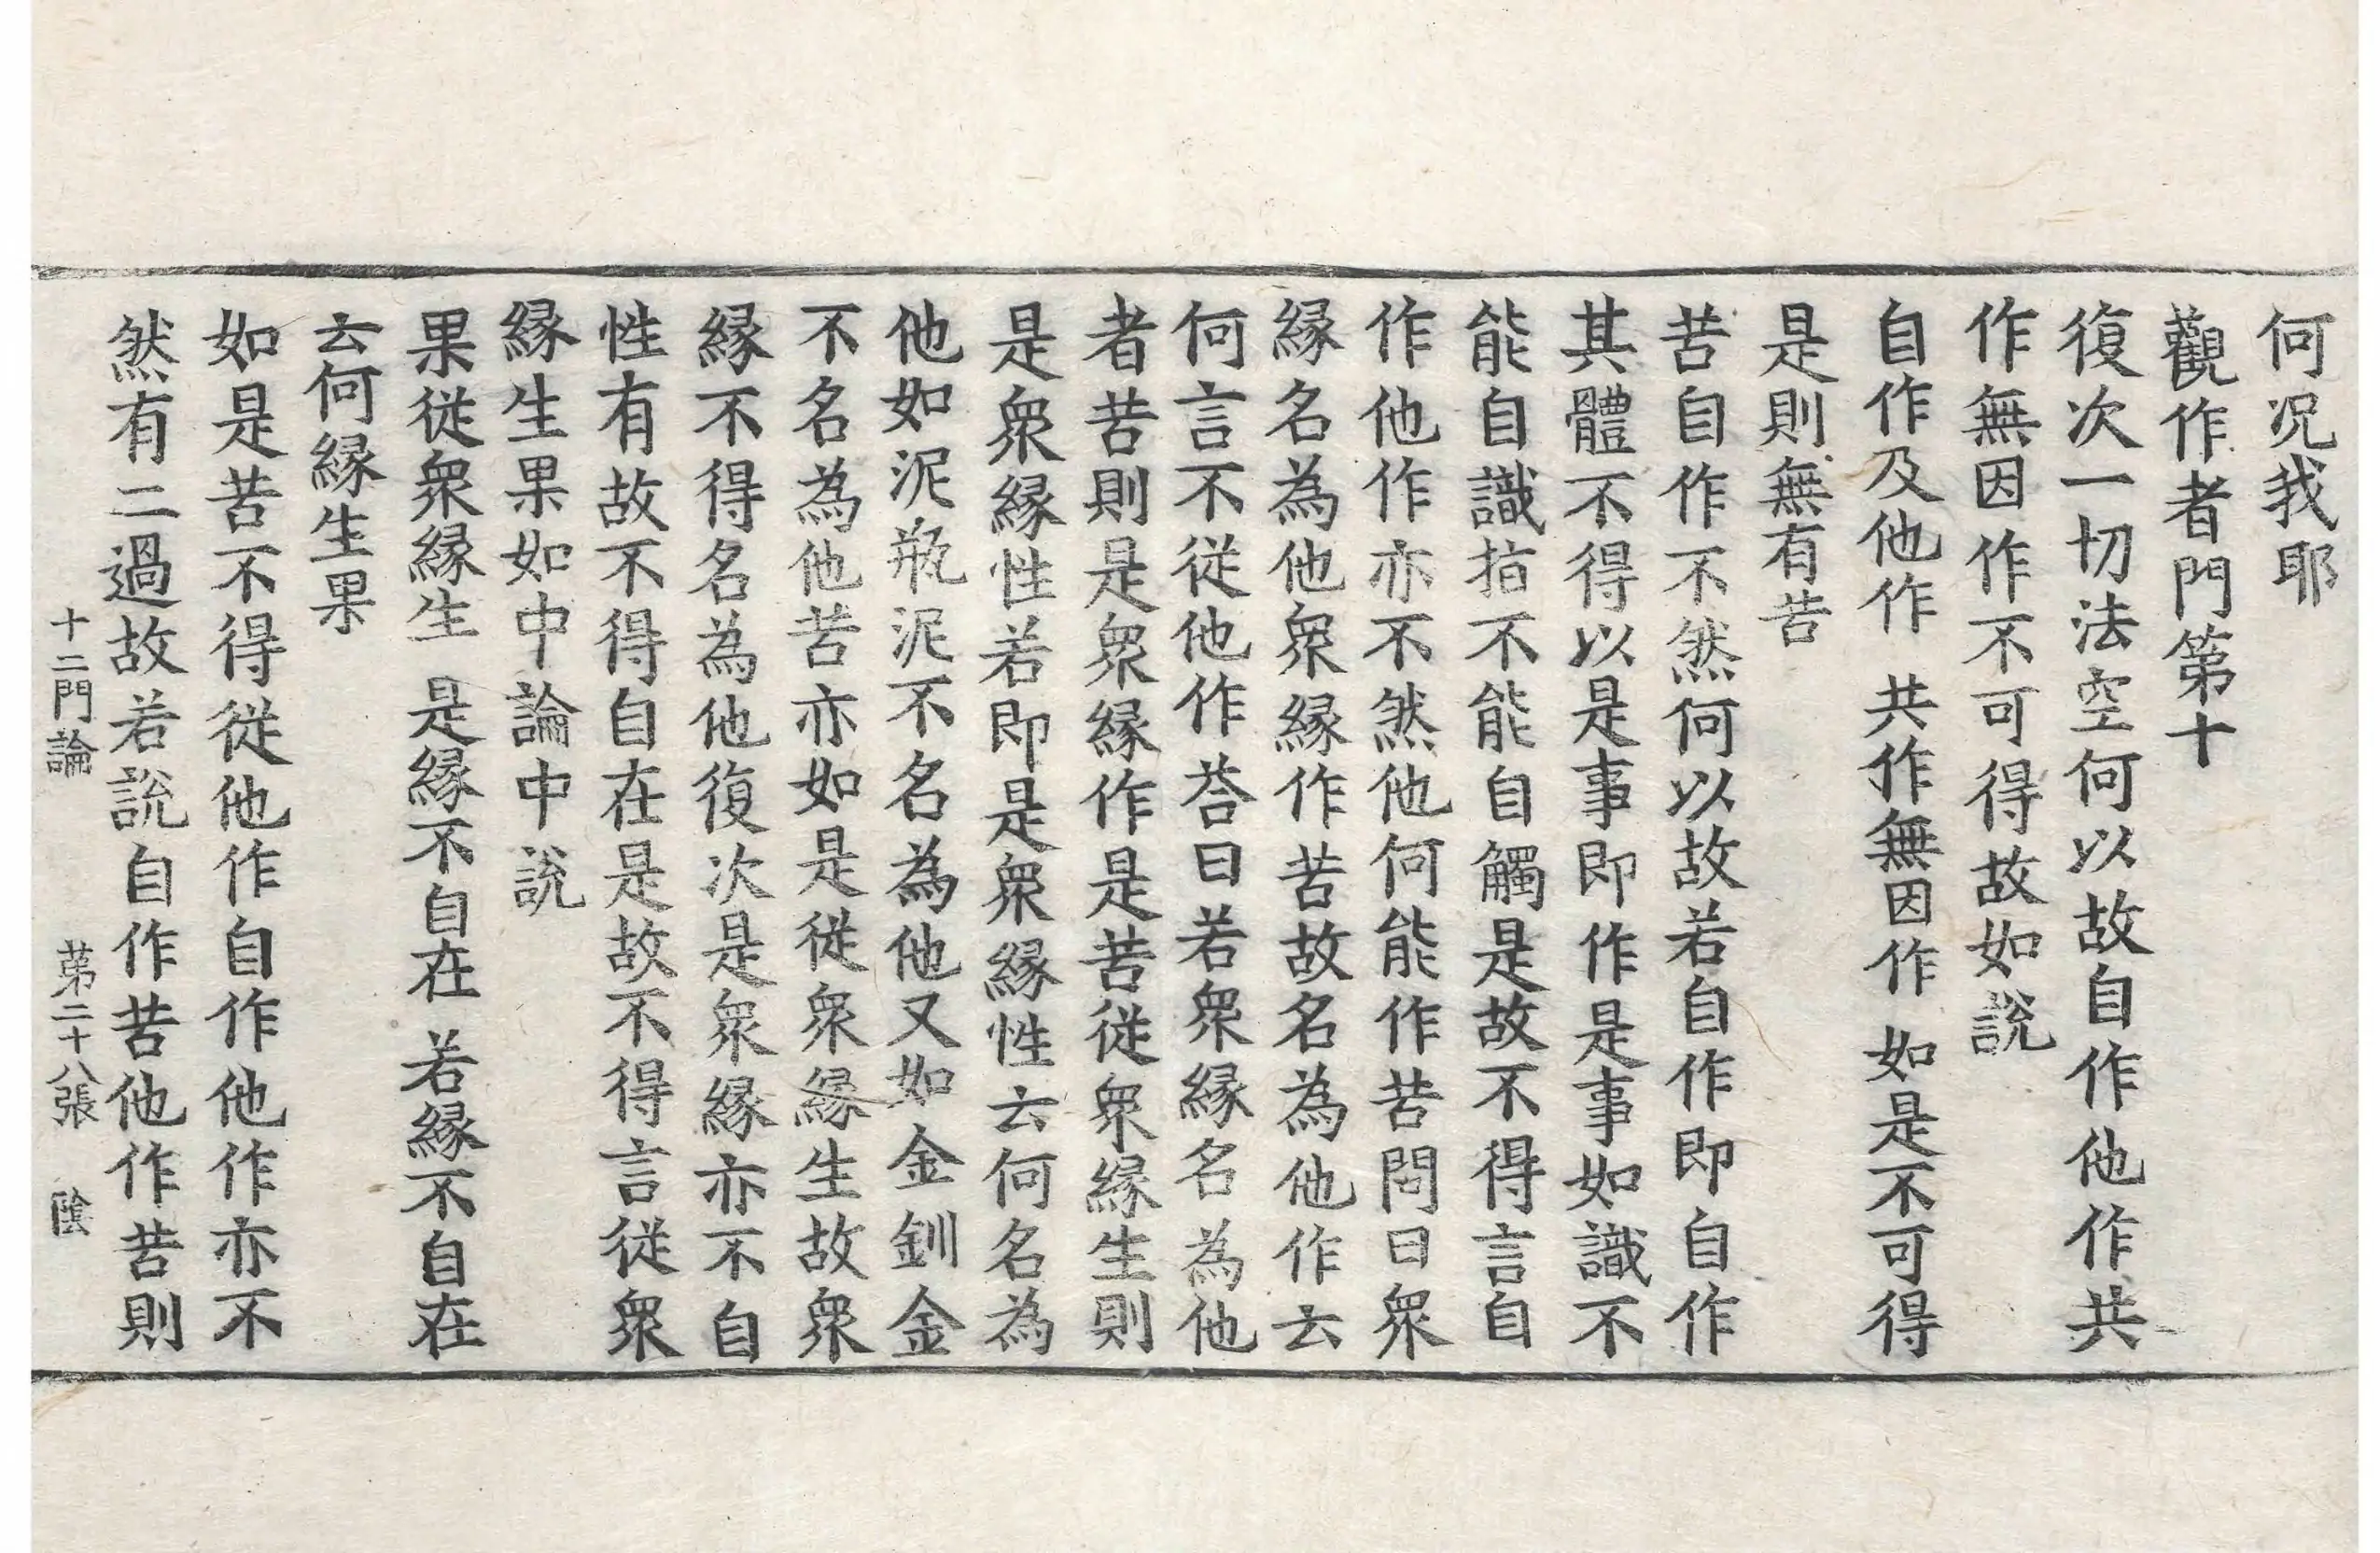 何况我耶
觀作者門第十
復次一切法空何以故自作他作共
作無因作不可得故如說
自作及他作　共作無因作　如是不可得
是則無有苦
苦自作不然何以故若自作即自作
其體不得以是事即作是事如識不
能自識指不能自觸是故不得言自
作他作亦不然他何能作苦問曰衆
縁名為他衆縁作苦故名為他作云
何言不從他作荅曰若衆縁名為他
者苦則是衆縁作是苦從衆縁生則
是衆縁性若即是衆縁性云何名為
他如泥瓶泥不名為他又如金釧金
不名為他苦亦如是從衆縁生故衆
縁不得名為他復次是衆縁亦不自
性有故不得自在是故不得言從衆
縁生果如中論中說
果從衆縁生　是縁不自在　若縁不自在
云何縁生果
如是苦不得從他作自作他作亦不
然有二過故若說自作苦他作苦則
十二門論　第二十八張　陰